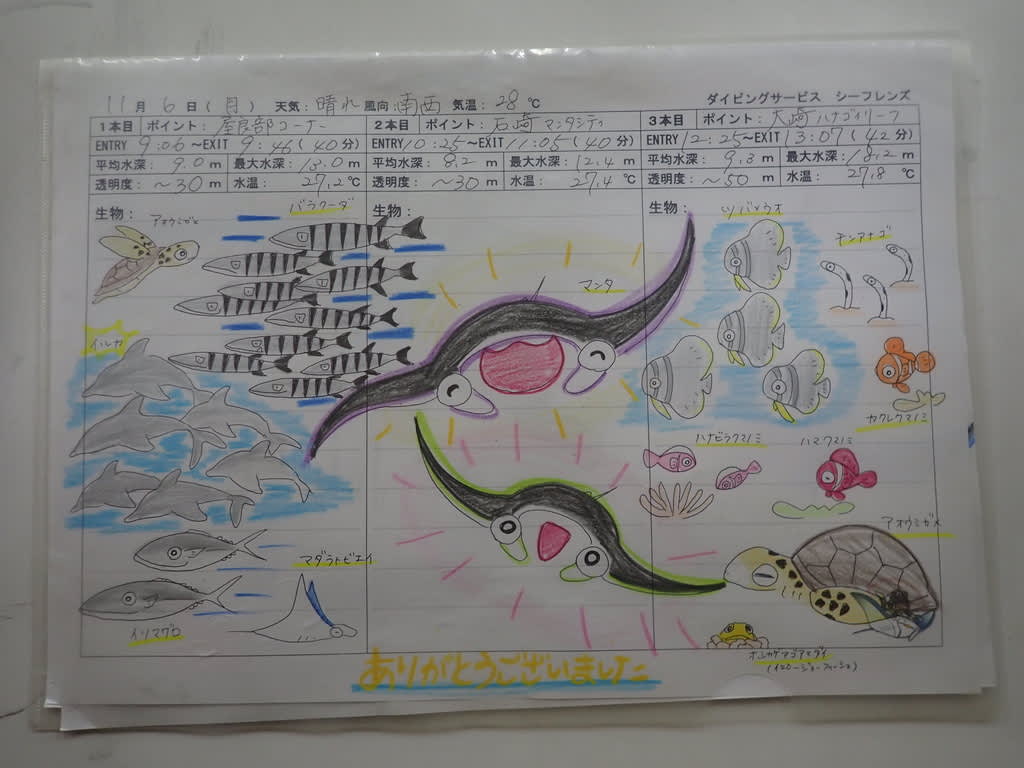 11月 6日(月) 天気: 晴れ 風向: 南西 気温: 28 ℃
ダイビングサービス シーフレンズ
1本目 ポイント: 屋良部コーナー
ENTRY 9:06 ～EXIT 9:46 (40分)
平均水深: 9.0 m 最大水深: 13.0 m
透明度: ～30 m 水温: 27.2 ℃
2本目 ポイント: 石崎マンタシティ
ENTRY 10:25 ～EXIT 11:05 (40分)
平均水深: 8.2 m 最大水深: 12.4 m
透明度: ～30 m 水温: 27.4 ℃
3本目 ポイント: 大崎ハナゴイリーフ
ENTRY 12:25 ～EXIT 13:07 (42分)
平均水深: 9.3 m 最大水深: 18.2 m
透明度: ～50 m 水温: 27.8 ℃
生物:
アオウミガメ
バラクーダ
イルカ
マダラトビエイ
イソマグロ
生物:
マンタ
生物:
ツバメウオ
チンアナゴ
カクレクマノミ
ハナビラクマノミ
ハマクマノミ
アオウミガメ
(イエロージョーフィッシュ)
ありがとうございました